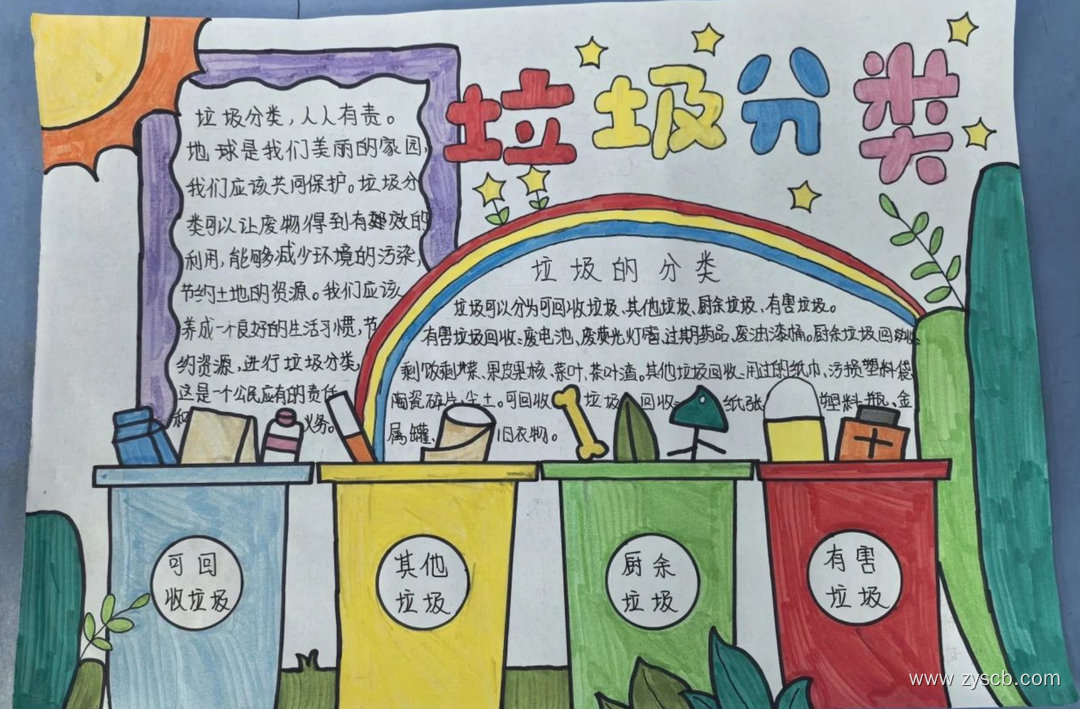 垃圾分类
垃圾分类，人人有责。
地球是我们美丽的家园，
我们应该共同保护。垃圾分
类可以让废物得到有效的
利用，能够减少环境的污染，
节约土地的资源。我们应该
养成一个良好的生活习惯，节
约资源，进行垃圾分类，
这是一个公民应有的责任
和 义务。
垃圾的分类
垃圾可以分为可回收垃圾、其他垃圾、厨余垃圾、有害垃圾。
有害垃圾回收：废电池、废荧光灯管、过期药品、废油漆桶。厨余垃圾回收：
剩饭剩菜、果皮果核、茶叶、茶叶渣。其他垃圾回收：用过的纸巾、污损塑料袋、
陶瓷碎片、尘土。可回收 垃圾 回收： 纸张 塑料瓶、金
属罐、 旧衣物。
可回
收垃圾
其他
垃圾
厨余
垃圾
有害
垃圾
www.zyscb.com